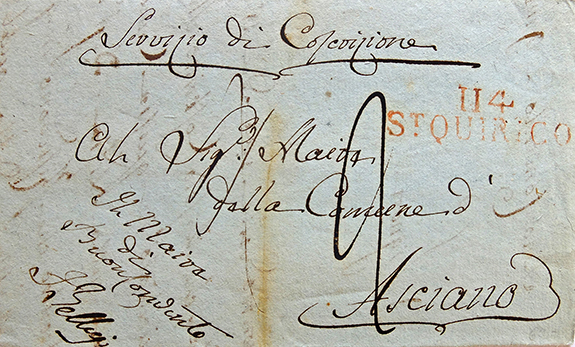 Servizio di Coscrizione
114
ST QUIRICO
Al Sig.r Maire
della Comune d'
Asciano
Il Maire
di
Buonconvento